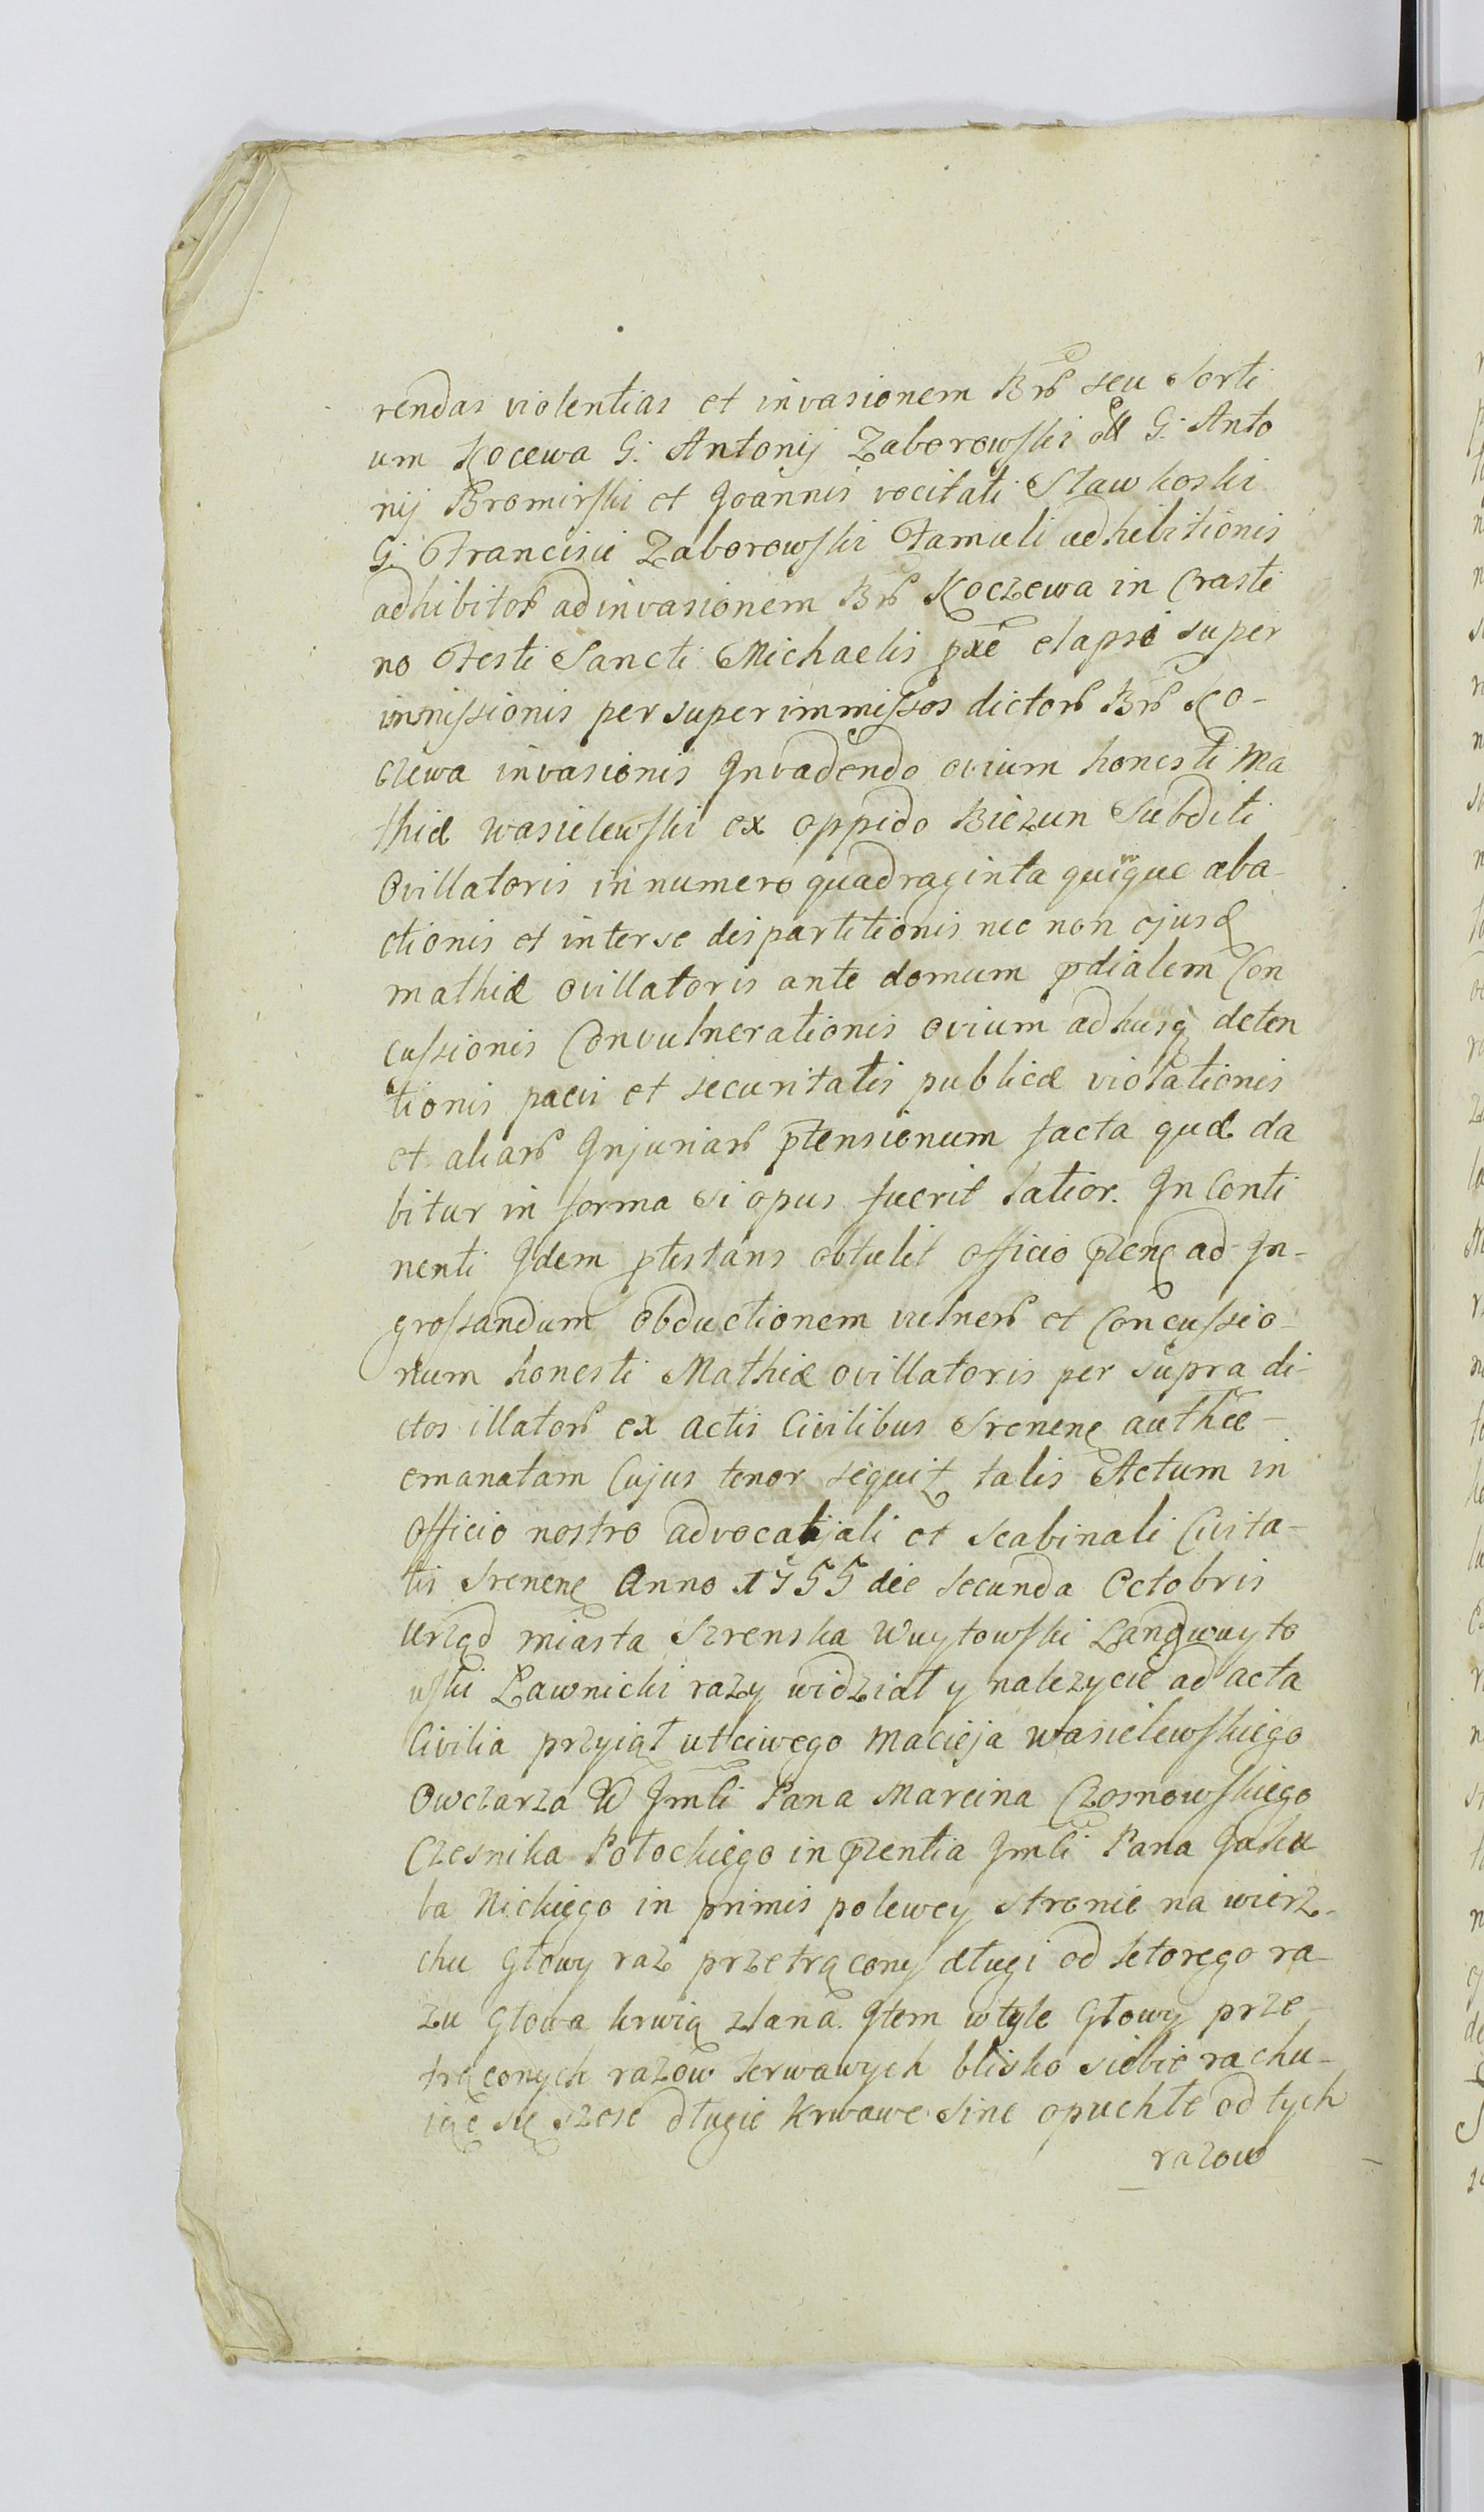 rendas violentias et invasionem Brũ seu Sorti
um Kocewa G: Antonij Zaborowski G: Anto
nij Bromirski et Joannis vocitati Stawkoski
G: Francisci Zaborowski Famuli adhibitionis
adhibitorũ ad invasionem Brũ Koczewa in Crasti
no Festi Sancti Michaelis pxẽ elapsi super
immissionis per superimmissos dictorũ Brũ Ko-
czewa invasionis Invadendo ovium honesti Ma
thiæ wasielewski ex oppido Biezun Subditi
Ovillatoris in numero quadraginta quinque aba
ctionis et inter se dispartitionis nec non ejusd
mathiæ ovillatoris ante domum pdialem Con
cussionis Convulnerationis ovium adhusq deten
tionis pacis et securitatis publicæ violationis
et aliarũ Injuriarũ ptensionum facta quæ da
bitur in forma si opus fuerit latior. In Conti
nenti Idem ptestans obtulit officio pzenę ad In-
grossandum obductionem vulnerũ et Concussio-
num honesti Mathiæ ovillatoris per supra di-
ctos illatorũ ex actis Civilibus Srenenę authẽe-
emanatam Cujus tenor sequitz talis Actum in
officio nostro advocatjali et Scabinali Civita-
tis Srenenę Anno 1755 die secunda Octobris
Urząd miasta Szrenska Wuytowski Landwuyto
uski Ławnicki razy widział y nalezycie ad acta
Civilia przyiął utciwego Macieja wasielewskiego
Owczarza W Jmći Pana Marcina Czosnowskiego
Czesnika Połockiego in pzentia Jmći Pana Jaku
ba Nickiego in primis polewey stronie na wierz-
chu Głowy raz przetrącony długi od ktorego ra-
zu Głowa krwią zlana. Item wtyle Głowy prze-
trąconych razow krwawych blisko siebie rachu-
iąc się szesc długie krwawe sine opuchłe od tych
razow